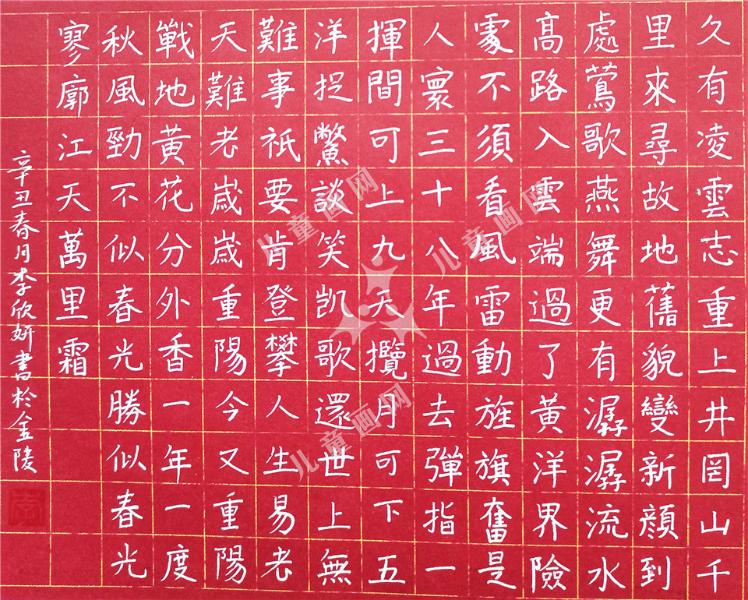 久有凌雲志重上井岡山千
里來尋故地舊貌變新顔到
處鶯歌燕舞更有潺潺流水
高路入雲端過了黃洋界險
處不須看風雷動旌旗奮是
人寰三十八年過去彈指一
揮間可上九天攬月可下五
洋捉鱉談笑凱歌還世上無
難事祇要肯登攀人生易老
天難老歲歲重陽今又重陽
戰地黃花分外香一年一度
秋風勁不似春光勝似春光
寥廓江天萬里霜
辛丑春月李欣妍書於金陵
儿童画网
儿童画网
儿童画网